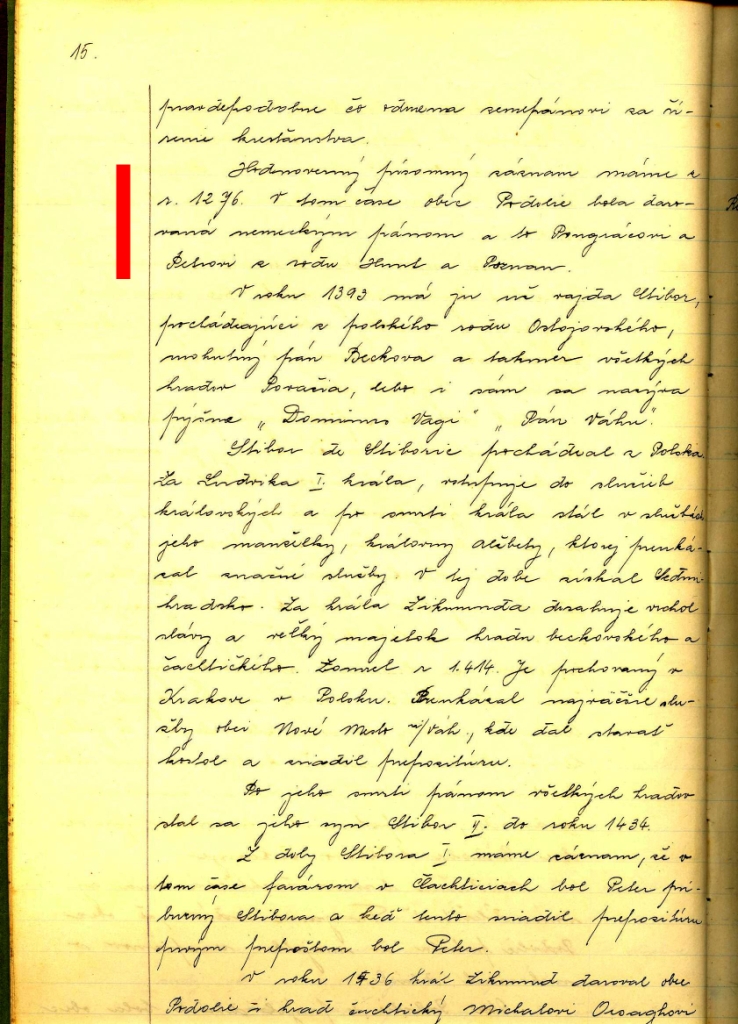 15.
pravdepodobne čo odmena zemepánovi za ší-
renie kresťanstva.
Hodnoverný písomný záznam máme z
r. 1276. V tom čase obec Podolie bola daro-
vaná nemeckým pánom a to Pongrácovi a
Petrovi z rodu Hunt a Poznan.
V roku 1393 má ju už vajda Stibor,
pochádzajúci z polského rodu Ostojovského,
mohutný pán Beckova a takmer všetkých
hradov Považia, lebo i sám sa nazýva
pyšne „Dominus Vagi" „Pán Váhu".
Stibor de Stiboric pochádzal z Polska.
Za Ludvika I. krála, vstupuje do služieb
královských a po smrti krála stál v službách
jeho manželky, královny Alžbety, ktorej preuká-
zal značné služby. V tej dobe získal Sedmi-
hradsko. Za krála Zikmunda dosahuje vrchol
slávy a veľký majetok hradu beckovského a
čachtického. Zomrel r. 1.414. Je pochovaný v
Krakove v Polsku. Preukázal najväčšie slu-
žby obci Nové Mesto n/Váh., kde dal stavať
kostol a zriadil prepozitúru.
Po jeho smrti pánom všetkých hradov
stal sa jeho syn Stibor II. do roku 1434.
Z doby Stibora I. máme záznam, že v
tom čase farárom v Čachticiach bol Peter prí-
buzný Stibora a keď tento zriadil prepozitúru
prvým prepoštom bol Peter.
V roku 1436 král Zikmund daroval obec
Podolie i hrad čachtický Michalovi Orsaghovi